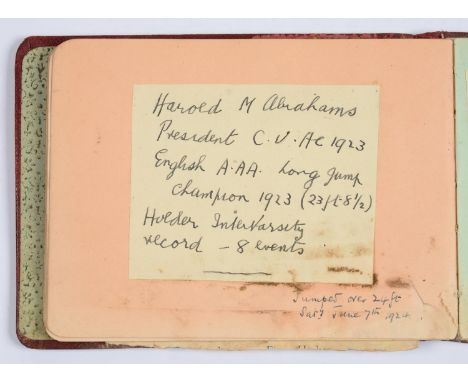 Harold M Abrahams
President C.U.AC 1923
English A.AA. Long Jump
Champion 1923 (23ft-8½)
Holder InterVarsity
record - 8 events
Jumped over 24ft
Sat'y June 7th, 1924.